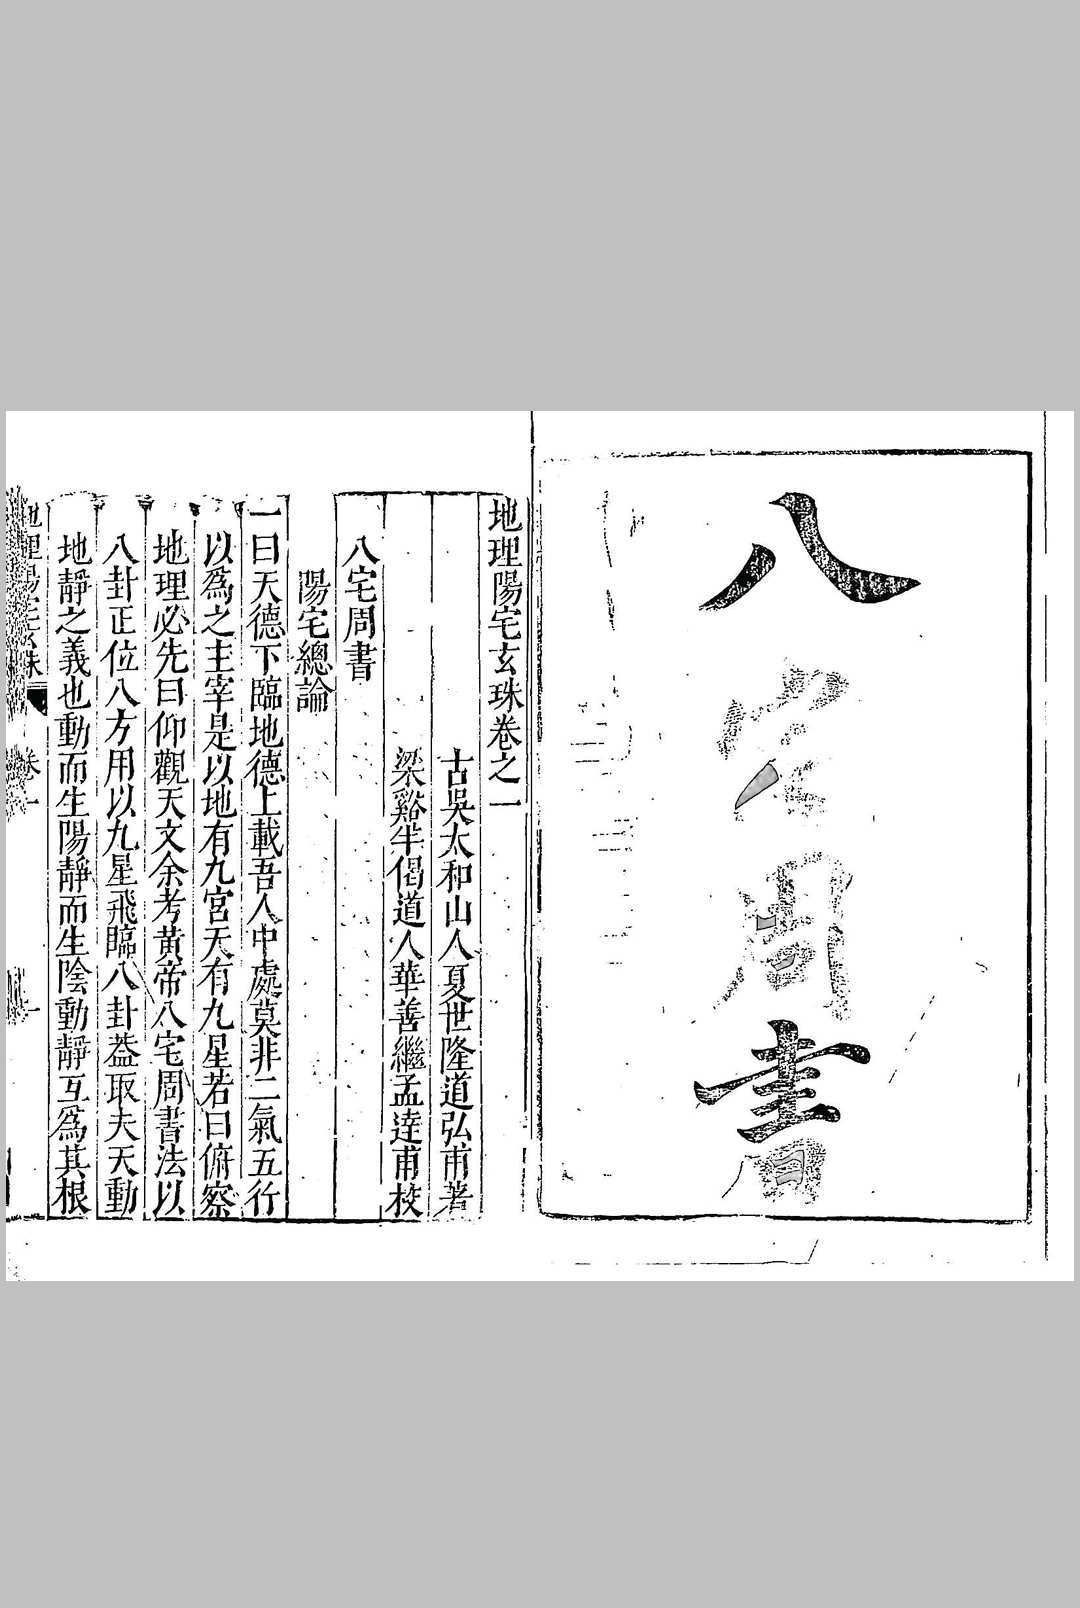 八宅周書
地理陽宅玄珠卷之一
古吳太和山人夏世隆道弘甫著
梁谿半偈道人華善繼孟達甫校
八宅周書
陽宅總論
一曰天德下臨地德上載吾人中處莫非二氣五行
以爲之主宰是以地有九宮天有九星若曰俯察
地理必先曰仰觀天文余考黃帝八宅周書法以
八卦正位八方用以九星飛臨八卦葢取夫天動
地靜之義也動而生陽靜而生陰動靜互爲其根
地理陽宅玄珠 卷一 一